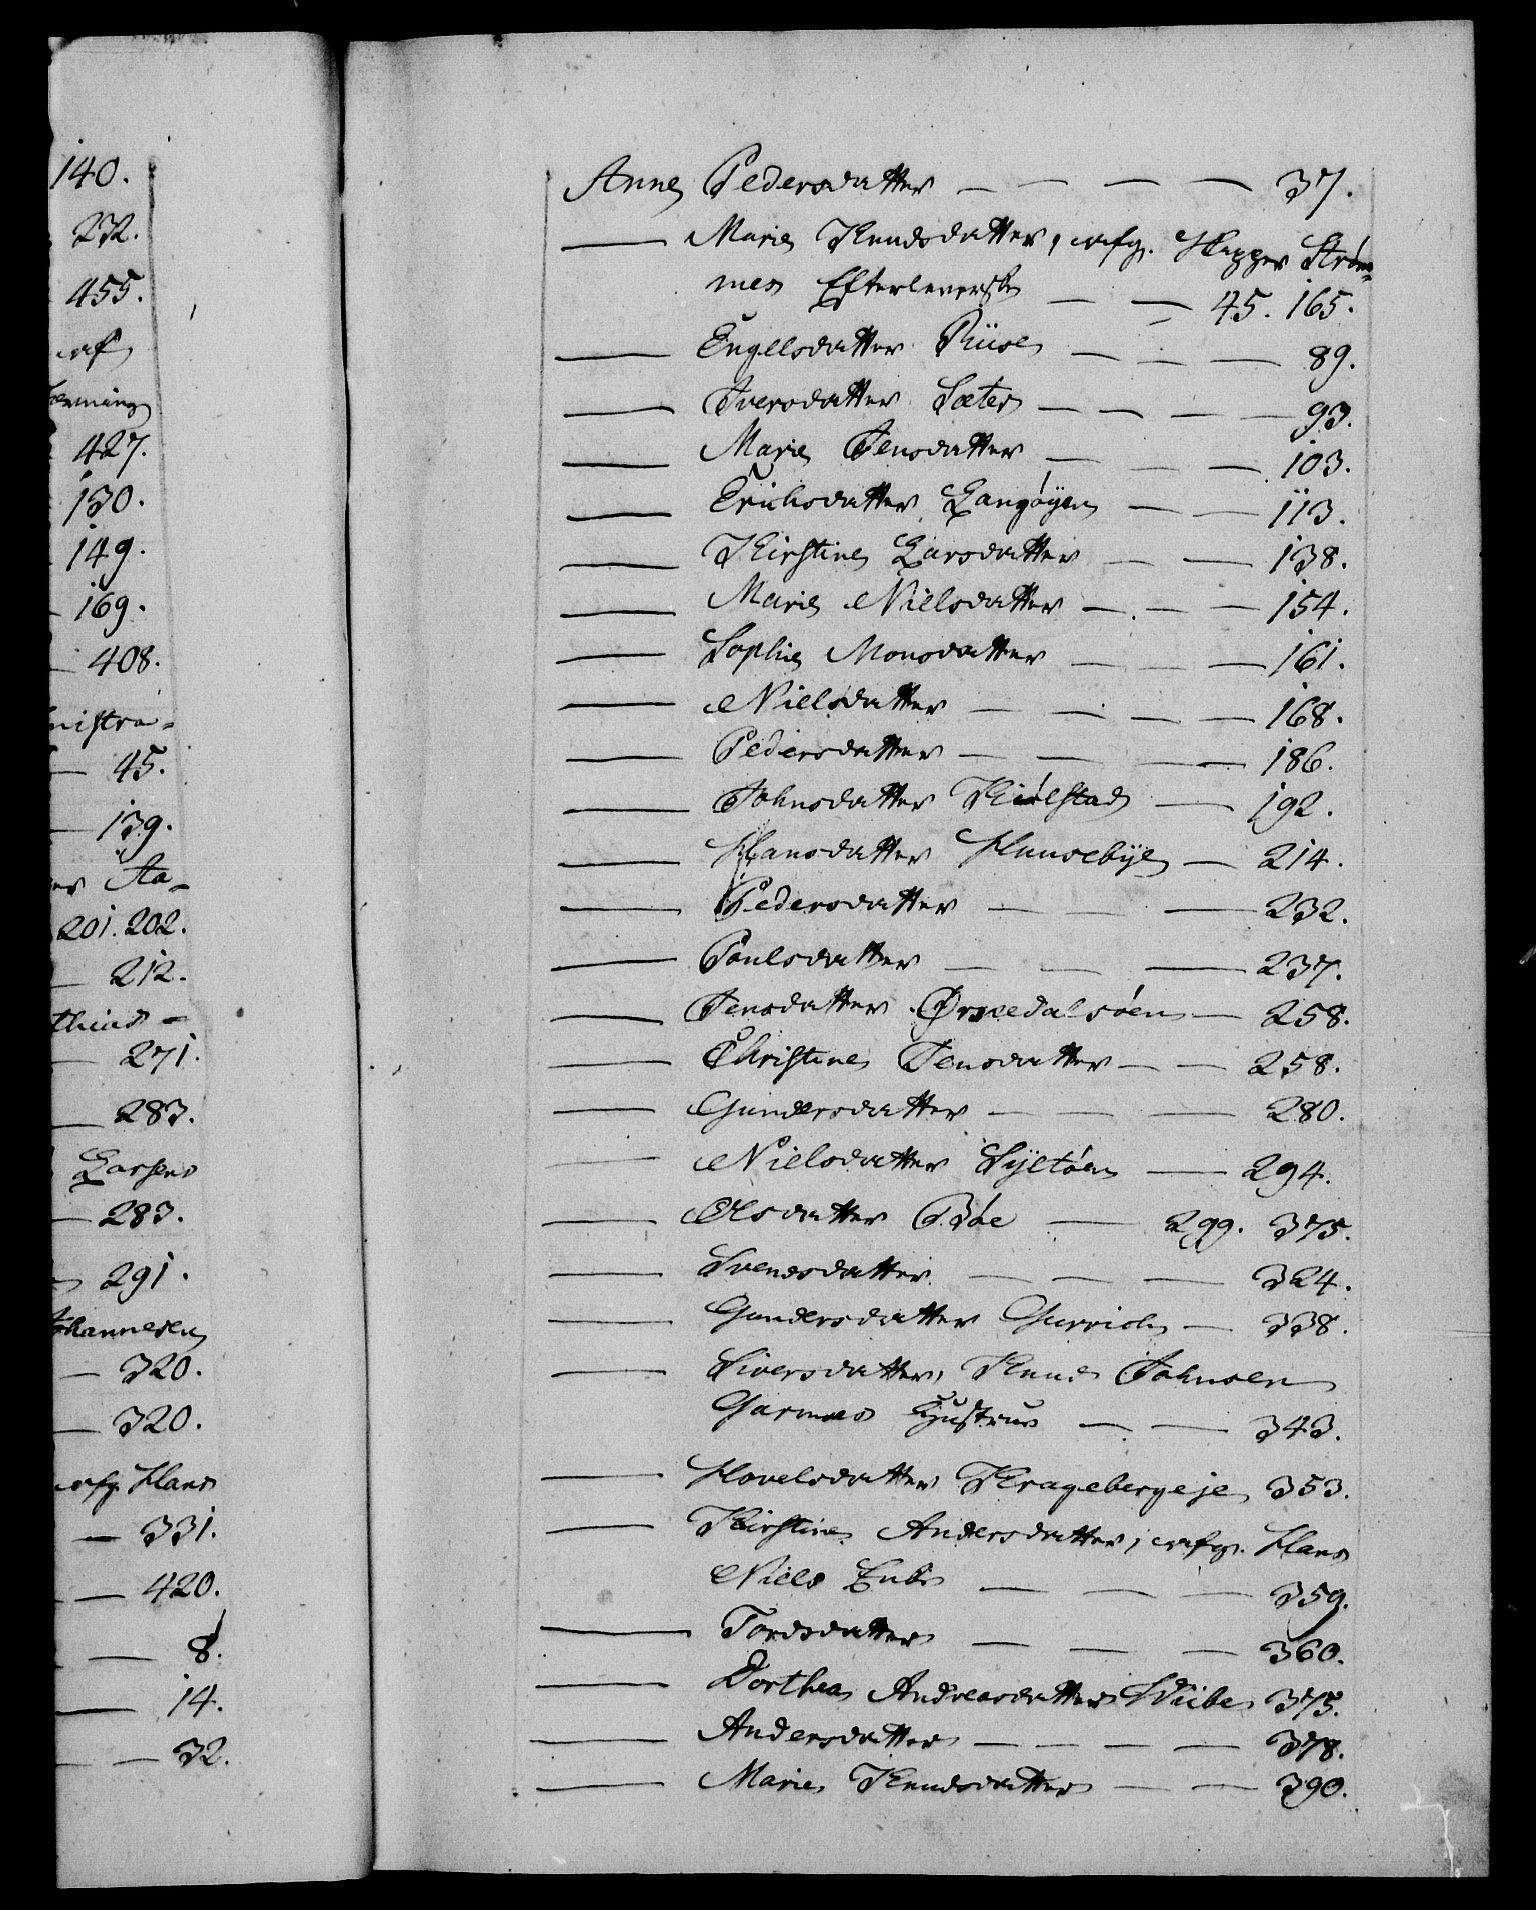 140.
232.
455.
427.
130.
149.
169.
408.
nistra-
45.
139.
Aa-
201. 202.
212.
271.
283.
Larsens
283.
291.
Johannesen
320.
320.
afg. Hans
331.
420.
8.
14.
32.
Anne Pedersdatter — — — — 37.
— Marie Knudsdatter, afg. Skipper Strøm-
mes Efterleverske — — 45. 165.
— Engelsdatter Riise — — — 89.
— Iversdatter Sæter — — — — 93.
— Marie Jensdatter — — — 103.
— Erichsdatter Langøyen — — 113.
— Kirstine Larsdatter — — 138.
— Marie Nielsdatter — — — 154.
— Sophie Monsdatter — — — 161.
— Nielsdatter — — — — 168.
— Pedersdatter — — — 186.
— Johnsdatter Kiølstad — 192.
— Hansdatter Huusebye — 214.
— Pedersdatter — — — 232.
— Poulsdatter — — — 237.
— Jensdatter Ørnedalsøen — 258.
— Christine Jensdatter — — 258.
— Gundersdatter — — — 280.
— Nielsdatter Syltøen — 294.
— Olsdatter Bøe — 299. 375.
— Svendsdatter — — — 324.
— Gundersdatter — 338.
— Siversdatter, Knud Johnsen
Garnæs Hustrue — — 343.
— Havelsdatter Kragebergeje 353.
— Kirstine Andersdatter, afg. Hans
Niels — — — 359.
— Tordsdatter — — — 360.
— Dorthea Andreasdatter Wiibe 375.
— Andersdatter — — — — 378.
— Marie Knudsdatter — — 390.